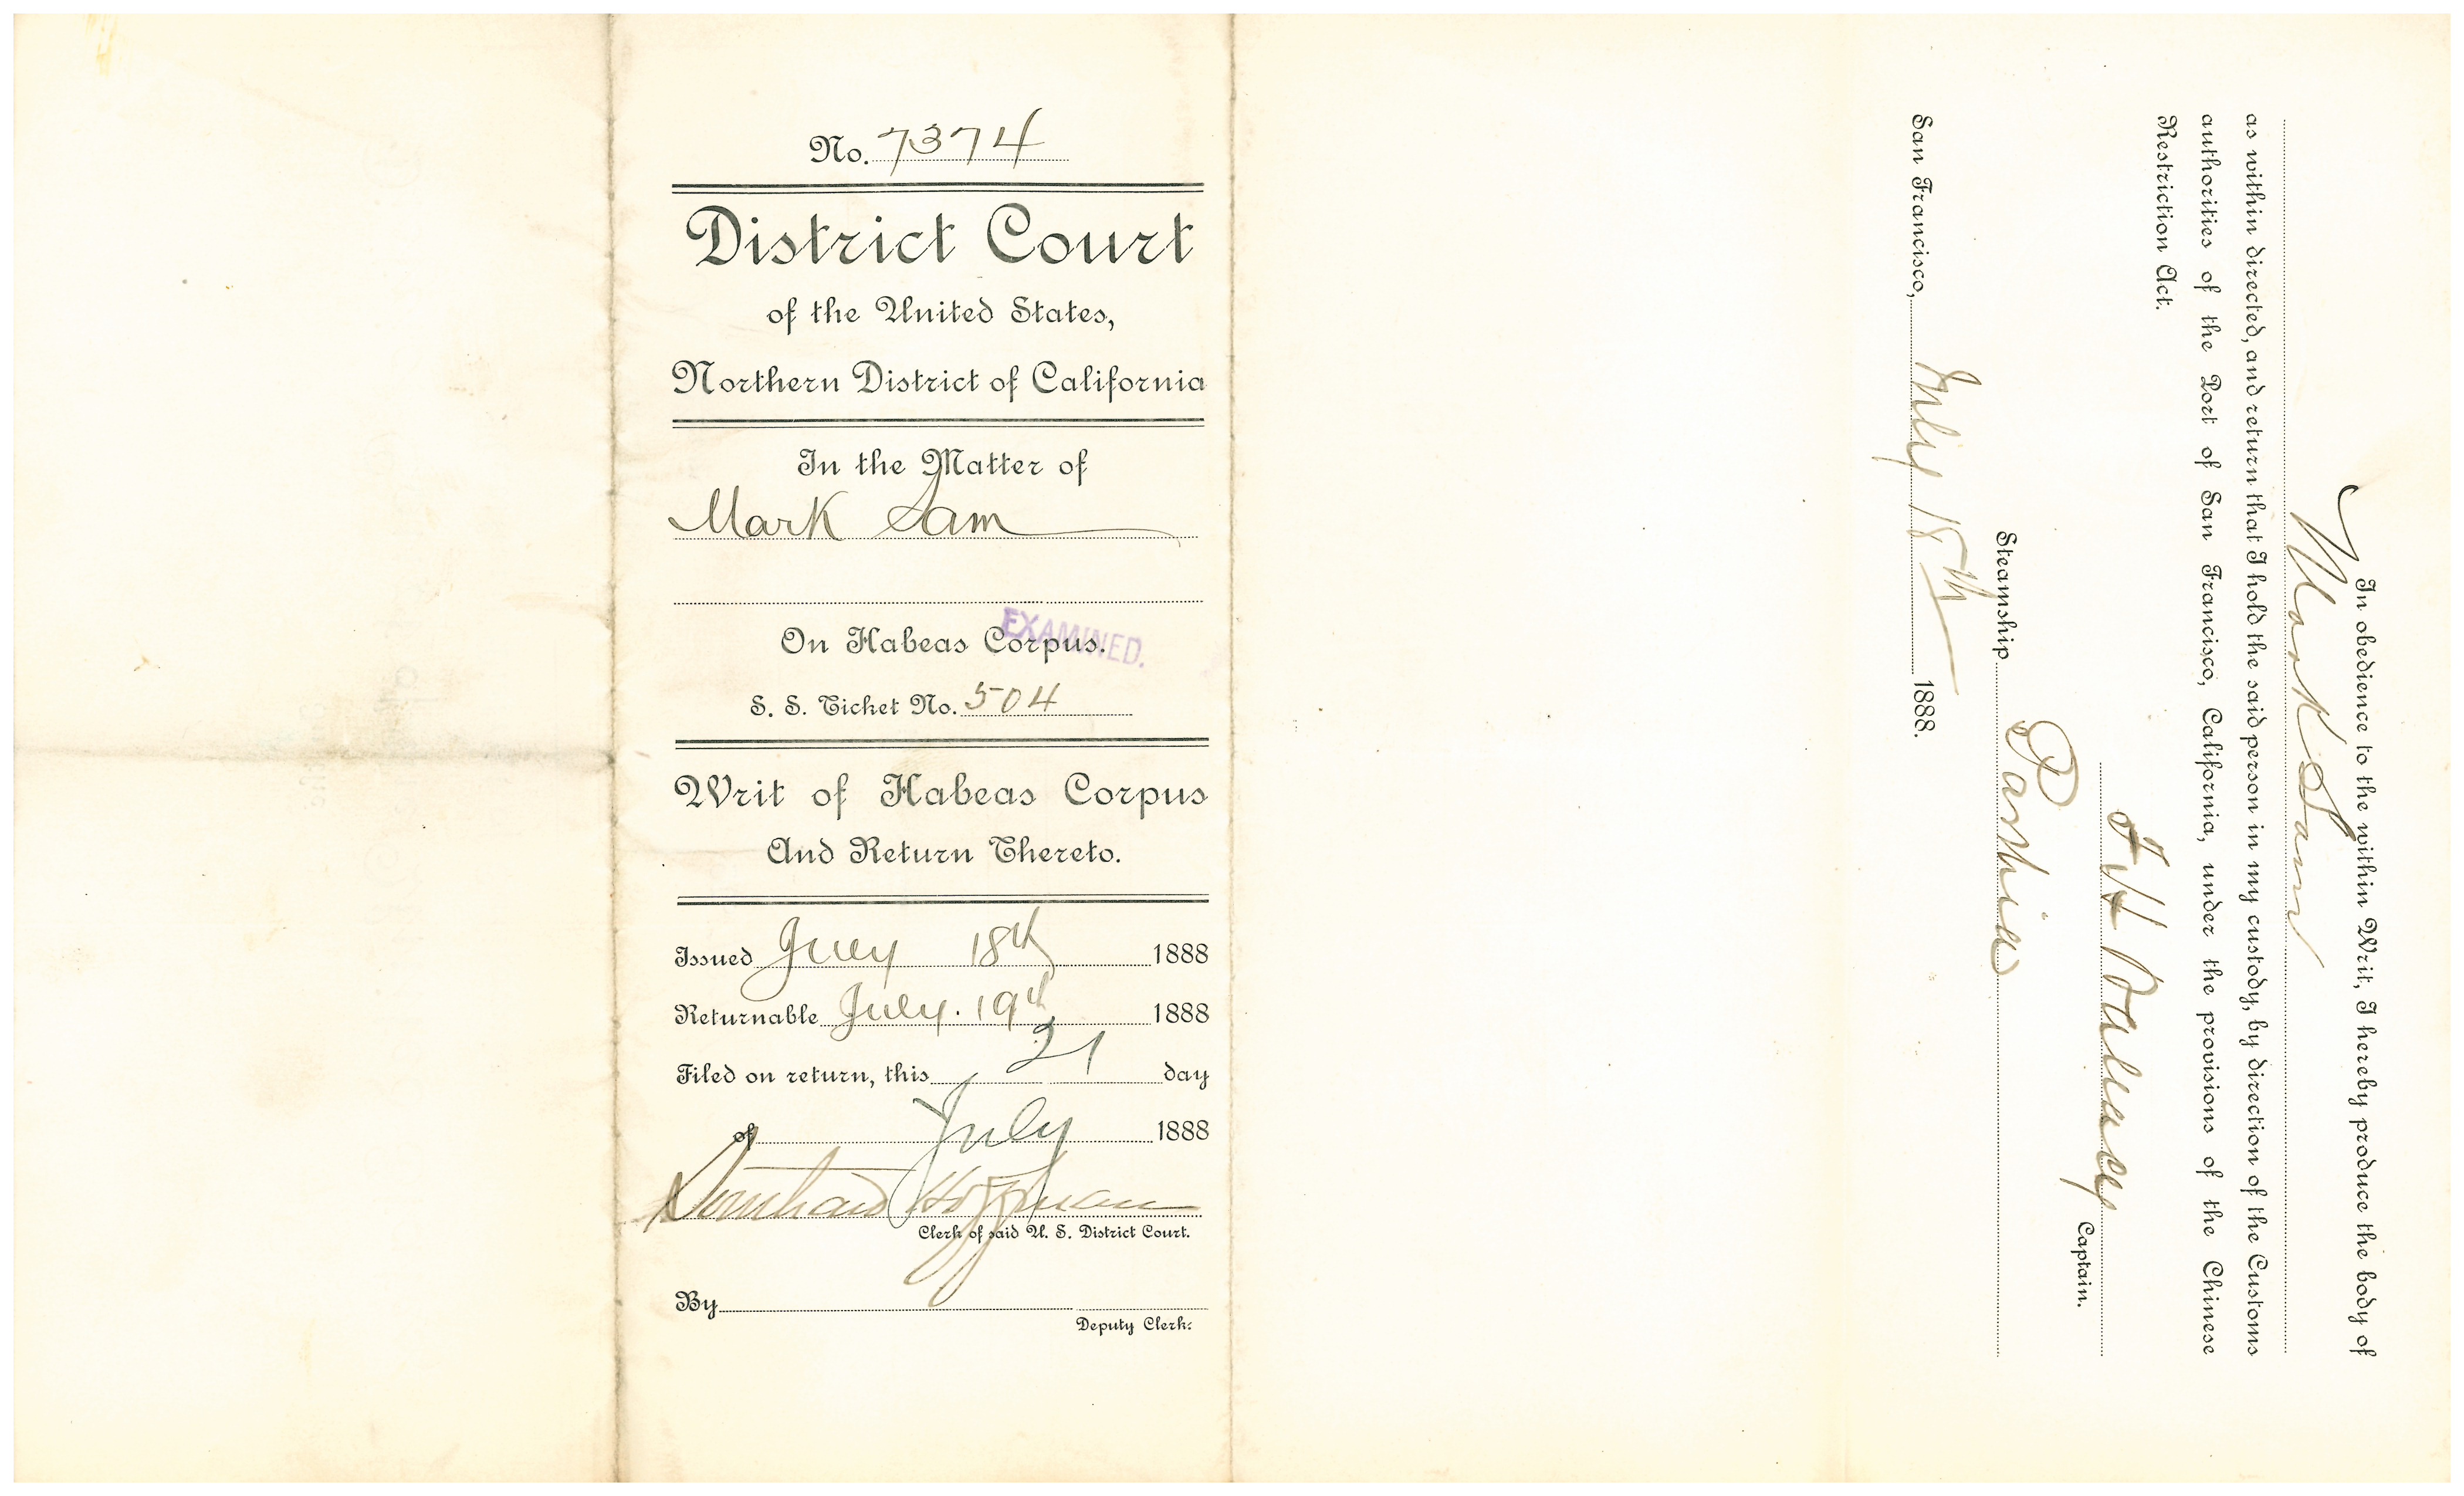 No. 7374
District Court
of the United States,
Northern District of California
In the Matter of
Mark Sam
On Habeas Corpus.
EXAMINED.
S. S. Ticket No. 504
Writ of Habeas Corpus
And Return Thereto.
Issued July 18th 1888
Returnable July. 19th 1888
Filed on return, this 21 day
of July 1888
Hoffman
Clerk of said U. S. District Court.
By
Deputy Clerk.
In obedience to the within Writ, I hereby produce the body of
Mark Sam
as within directed, and return that I hold the said person in my custody, by direction of the Customs
authorities of the Port of San Francisco, California, under the provisions of the Chinese
Restriction Act.
Captain.
Steamship Parthia
San Francisco, July 18th 1888.